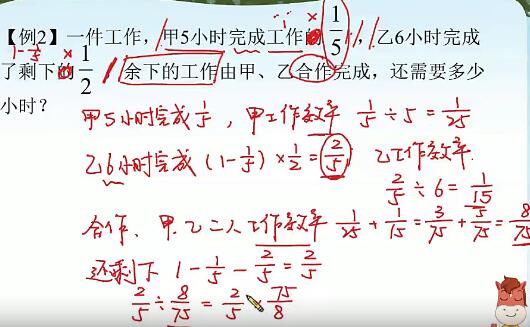 【例2】一件工作，甲5小时完成工作的 1/5，乙6小时完成
1-1/5 ×
了剩下的 1/2，余下的工作由甲、乙合作完成，还需要多少
小时？
甲5小时完成 1/5，甲工作效率 1/5 ÷ 5 = 1/25
乙6小时完成 (1-1/5) × 1/2 = 2/5 乙工作效率
2/5 ÷ 6 = 1/15
合作、甲、乙二人工作效率 1/25 + 1/15 = 3/75 + 5/75 = 8/75
还剩下 1 - 1/5 - 2/5 = 2/5
2/5 ÷ 8/75 = 2/5 75/8